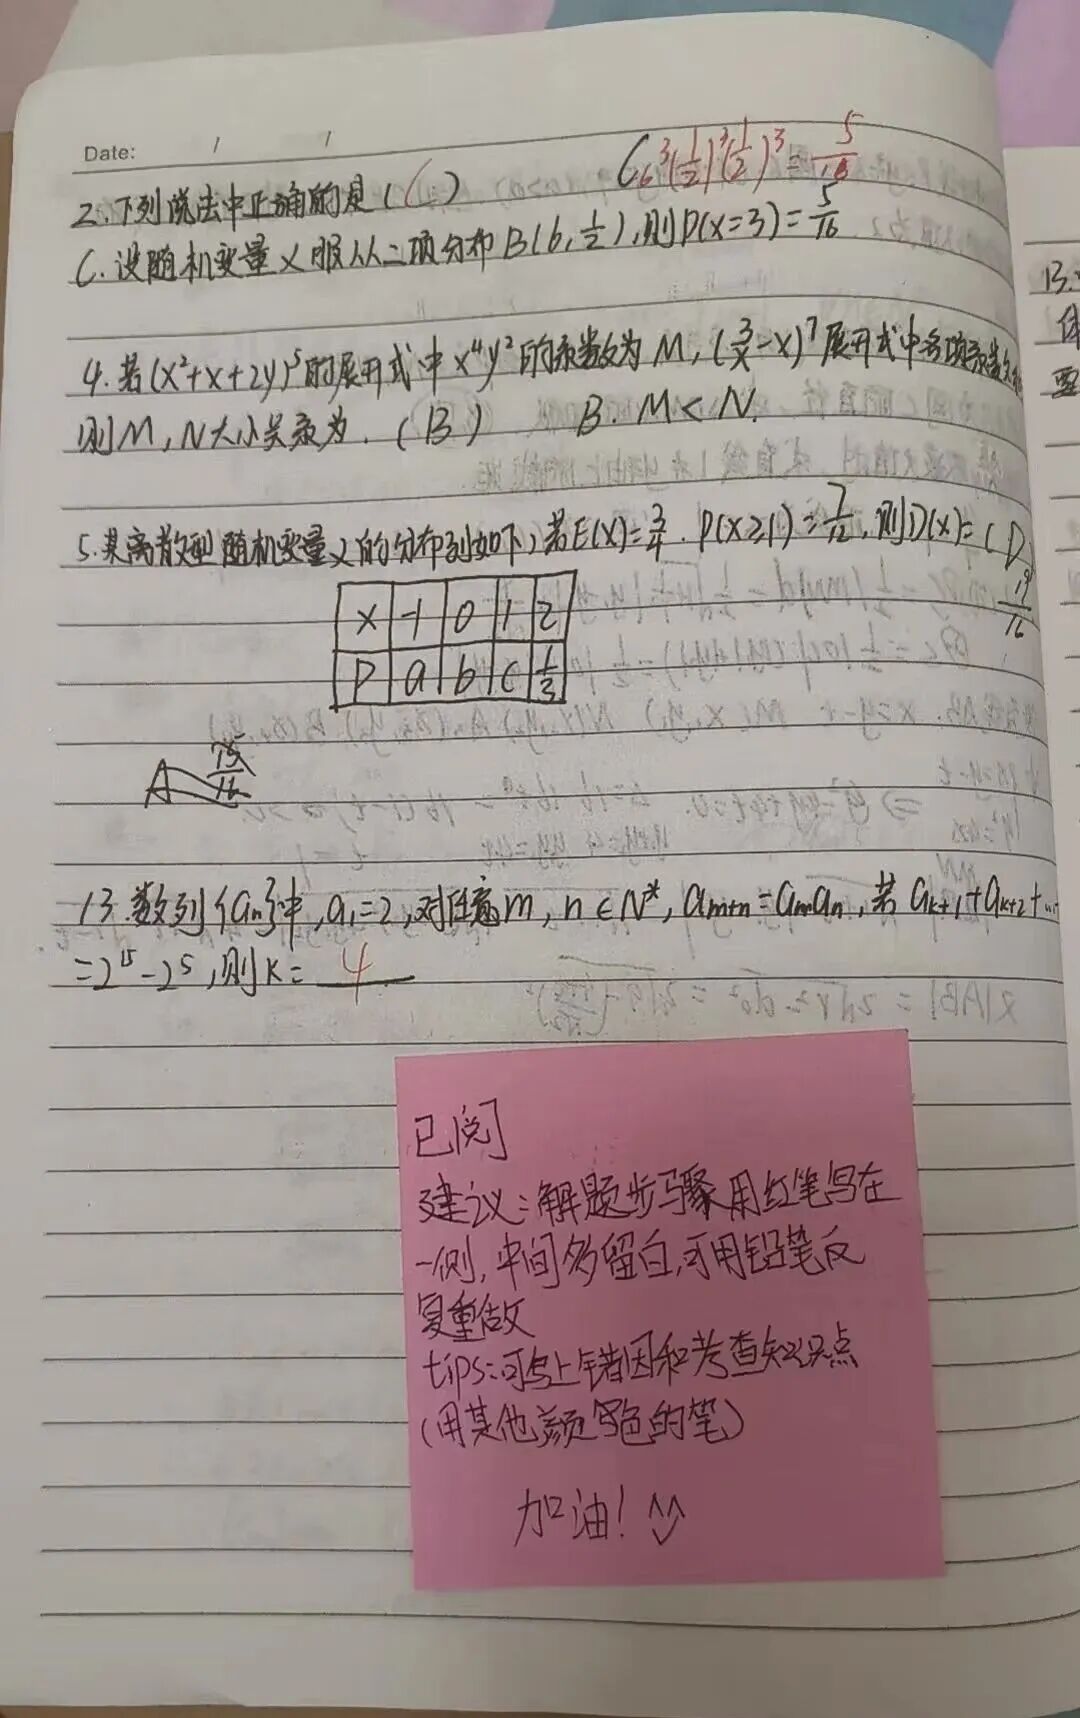 Date: / /
C₆³(1/2)³(1/2)³=5/16
2.下列说法中正确的是(C)
C.设随机变量X服从二项分布B(6,1/2),则P(X=3)=5/16
4.若(x²+x+2y)⁵的展开式中x⁴y²的系数为M,(3/x-x)⁷展开式中各项系数
则M,N大小关系为.(B) B.M<N.
5.某离散型随机变量X的分布列如下,若E(X)=3/4.P(X≥1)=7/12,则D(X)=(D
19/16
X -1 0 1 2
P a b c 1/3
A
13.数列{aₙ}中,a₁=2,对任意m,n∈N*,aₘ₊ₙ=aₘaₙ,若aₖ₊₁+aₖ₊₂+...
=2¹⁵-2⁵,则k=4
已阅
建议:解题步骤用红笔写在
一侧,中间多留白,可用铅笔反
复重做
tips:可写上错因和考查知识点
(用其他颜色的笔)
加油!
13.
体